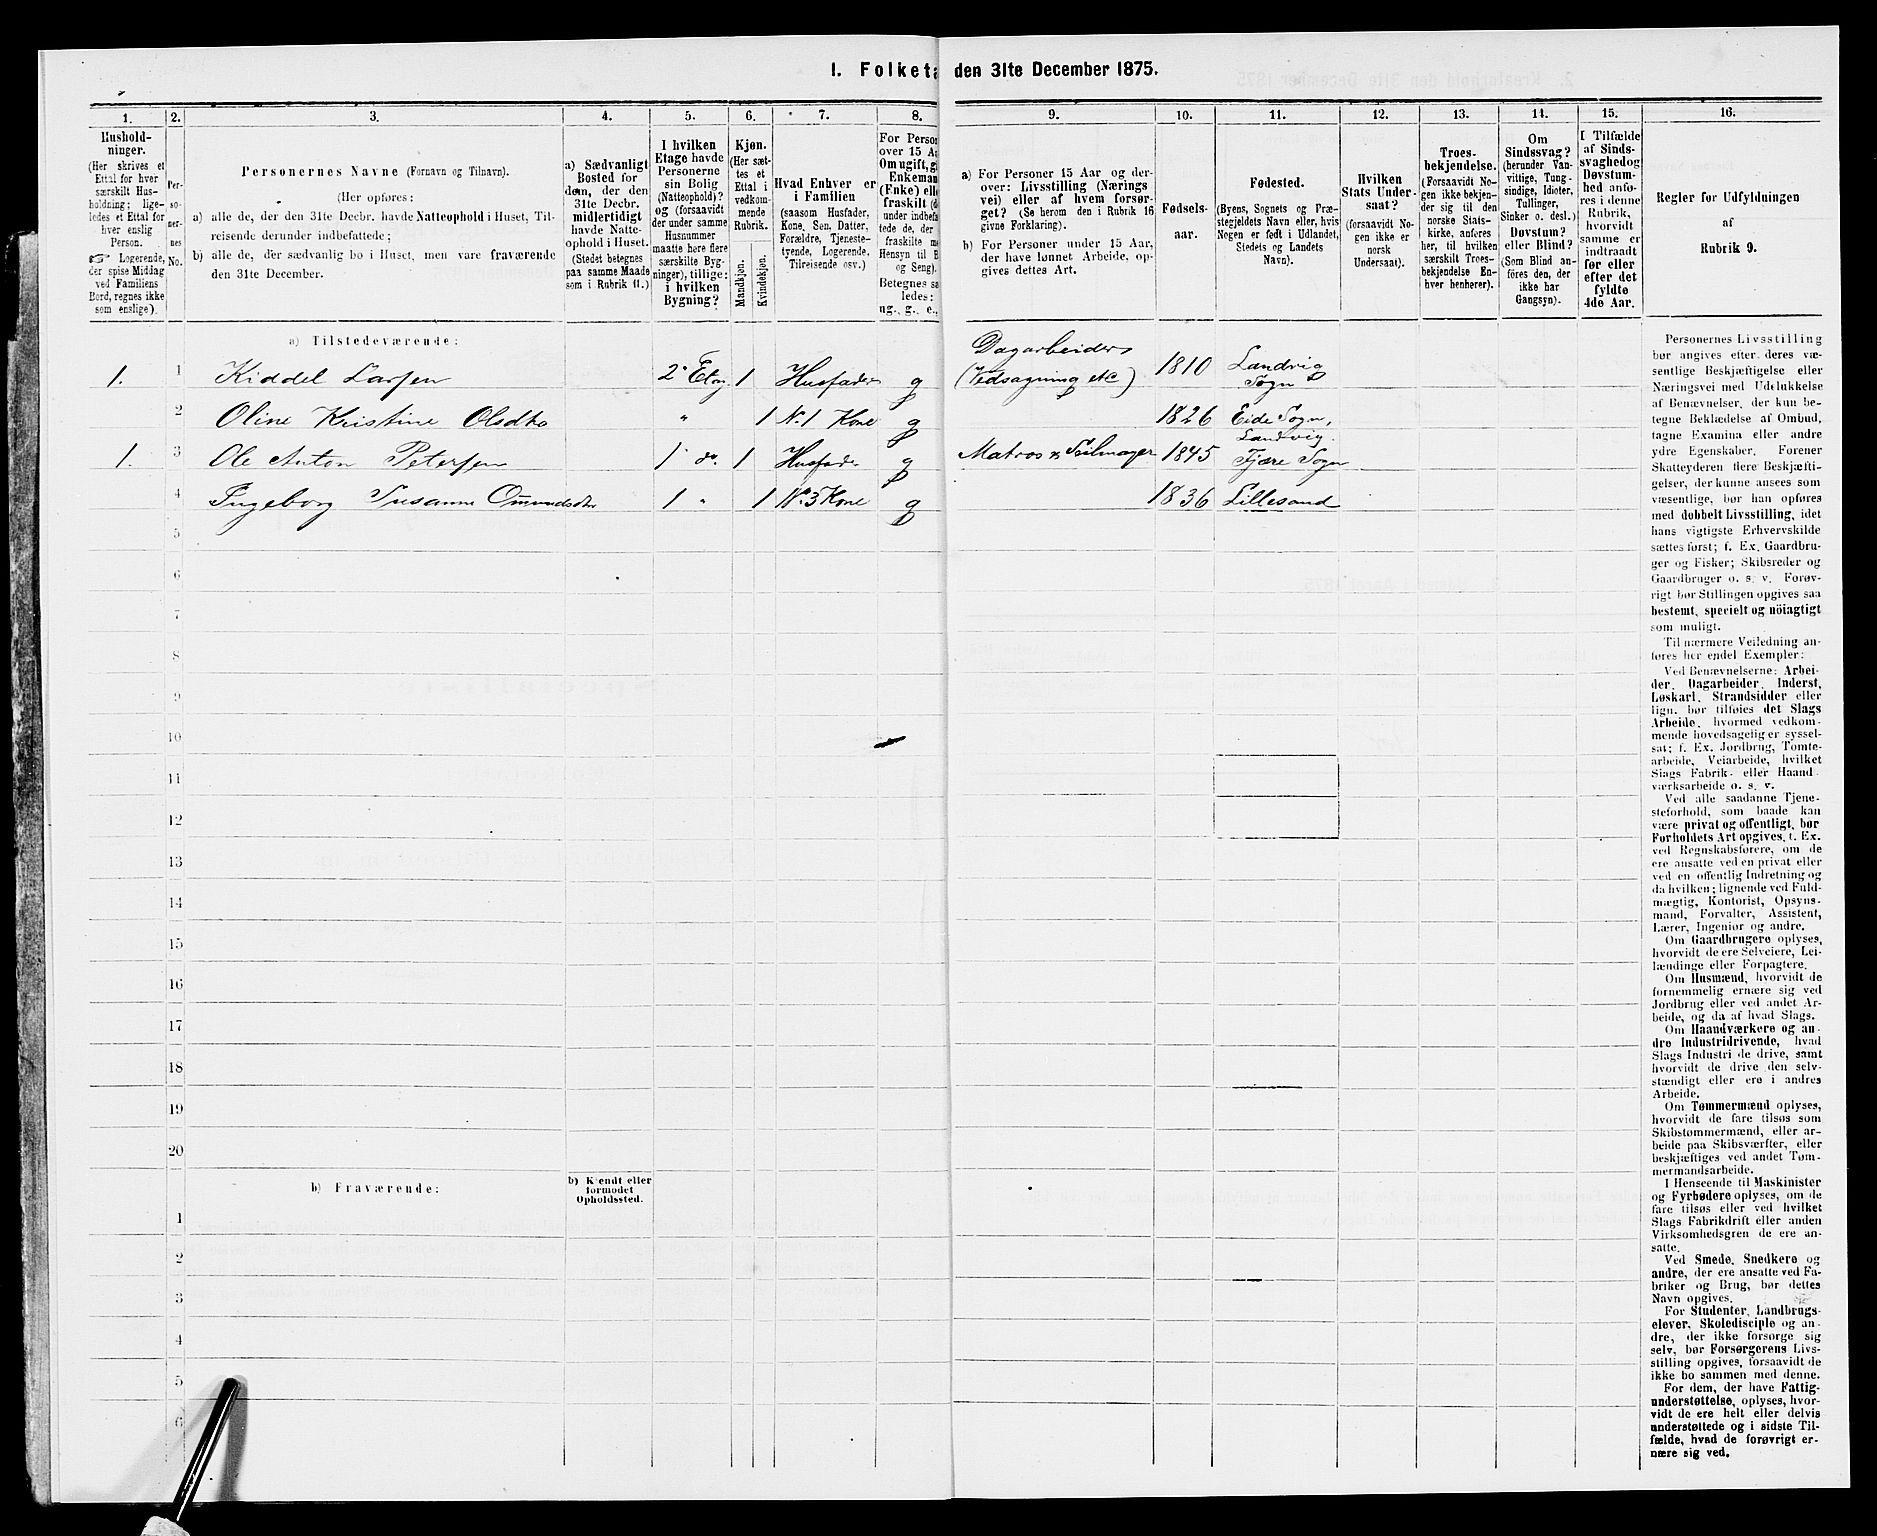 I. Folketæ den 31te December 1875.
1. 2. 3. 4. 5. 6. 7. 8. 9. 10. 11. 12. 13. 14. 15. 16.
Hushold-
ninger.
(Her skrives et
Ettal for hver
særskilt Hus-
holdning; lige-
ledes et Ettal for
hver enslig
Person.
☞ Logerende,
der spise Middag
ved Familiens
Bord, regnes ikke
som enslige).
Per-
so-
ner-
nes
No.
Personernes Navne (Fornavn og Tilnavn).
(Her opføres:
a) alle de, der den 31te Decbr. havde Natteophold i Huset, Til-
reisende derunder indbefattede;
b) alle de, der sædvanlig bo i Huset, men vare fraværende
den 31te December.
a) Sædvanligt
Bosted for
dem, der den
31te Decbr.
midlertidigt
havde Natte-
ophold i Huset.
(Stedet betegnes
paa samme Maade
som i Rubrik 11.)
I hvilken
Etage havde
Personerne
sin Bolig
(Natteophold)?
og (forsaavidt
der under samme
Husnummer
maatte være flere
særskilte Byg-
ninger), tillige:
i hvilken
Bygning?
Kjøn.
(Her sæt-
tes et
Ettal i
vedkom-
mende
Rubrik.
Mandkjøn.
Kvindekjøn.
Hvad Enhver er
i Familien
(saasom Husfader,
Kone, Søn, Datter,
Forældre, Tjeneste-
tyende, Logerende,
Tilreisende osv.)
For Person
over 15 Aa
Om ugift, g
Enkeman
(Enke) elle
fraskilt (d
under indbefa
tede de, der
fraskilte m
Hensyn til B
og Seng).
Betegnes sa
ledes:
ug., g., e.,
a) For Personer 15 Aar og der-
over: Livsstilling (Nærings
vei) eller af hvem forsør-
get? (Se herom den i Rubrik 16
givne Forklaring).
b) For Personer under 15 Aar,
der have lønnet Arbeide, op-
gives dettes Art.
Fødsels-
aar.
Fødested.
(Byens, Sognets og Præ-
stegjeldets Navn eller, hvis
Nogen er født i Udlandet,
Stedets og Landets
Navn).
Hvilken
Stats Under-
saat?
(forsaavidt No-
gen ikke er
norsk
Undersaat).
Troes-
bekjendelse.
(Forsaavidt No-
gen ikke bekjen-
der sig til den
norske Stats-
kirke, anføres
her, til hvilken
særskilt Troes-
bekjendelse En-
hver henhører).
Om
Sindssvag?
(herunder Van-
vittige, Tung-
sindige, Idioter,
Tullinger,
Sinker o. desl.)
Døvstum?
eller Blind?
(Som Blind an-
føres den, der
ikke har
Gangsyn).
I Tilfælde
af Sinds-
svaghed og
Døvstum-
hed anfø-
res i denne
Rubrik,
hvorvidt
samme er
indtraadt
før eller
efter det
fyldte
4de Aar.
Regler for Udfyldningen
af
Rubrik 9.
a) Tilstedeværende:
1. 1 Kiddel Larsen 2den Etage 1 Husfader g Dagarbeider (Vedsagning etc) 1810 Landvig Sogn
2 Oline Kristine Olsdtr " 1 No. 1 Kone g 1826 Eide Sogn, Landvig.
1. 3 Ole Anton Petersen 1 do. 1 Husfader g Matros & Seilmager 1845 Fjære Sogn
4 Ingeborg Susanne Omundsdtr 1 " 1 No. 3 Kone g 1836 Lillesand
5
6
7
8
9
10
11
12
13
14
15
16
17
18
19
20
b) Fraværende:
b) Kjendt eller
formodet
Opholdssted.
1
2
3
4
5
6
Personernes Livsstilling
bør angives efter deres væ-
sentlige Beskjæftigelse eller
Næringsvei med Udelukkelse
af Benævnelser, der kun be-
tegne Beklædelse af Ombud,
tagne Examina eller andre
ydre Egenskaber. Forener
Skatteyderen flere Beskjæfti-
gelser, der kunne ansees som
væsentlige, bør han opføres
med dobbelt Livsstilling, idet
hans vigtigste Erhvervskilde
sættes først; f. Ex. Gaardbru-
ger og Fisker; Skibsreder og
Gaardbruger o. s. v. Forøv-
rigt bør Stillingen opgives saa
bestemt, specielt og nöiagtigt
som muligt.
Til nærmere Veiledning an-
føres her endel Exempler:
Ved Benævnelserne: Arbei-
der, Dagarbeider, Inderst,
Løskarl, Strandsidder eller
lign. bør tilføies det Slags
Arbeide, hvormed vedkom-
mende hovedsagelig er syssel-
sat; f. Ex. Jordbrug, Tomte-
arbeide, Veiarbeide, hvilket
Slags Fabrik- eller Haand-
værksarbeide o. s. v.
Ved alle saadanne Tjene-
steforhold, som baade kan
være privat og offentligt, bør
Forholdets Art opgives, t. Ex.
ved Regnskabsførere, om de
ere ansatte ved en privat eller
ved en offentlig Indretning og
da hvilken; lignende ved Fuld-
mægtig, Kontorist, Opsyns-
mand, Forvalter, Assistent,
Lærer, Ingeniør og andre.
Om Gaardbrugere oplyses,
hvorvidt de ere Selveiere, Lei-
lændinge eller Forpagtere.
Om Husmænd, hvorvidt de
fornemmelig ernære sig ved
Jordbrug eller ved andet Ar-
beide, og da af hvad Slags.
Om Haandværkere og an-
dre Industridrivende, hvad
Slags Industri de drive, samt
hvorvidt de drive den selv-
stændigt eller ere i andres
Arbeide.
Om Tømmermænd oplyses,
hvorvidt de fare tilsøs som
Skibstømmermænd, eller ar-
beide paa Skibsværfter, eller
beskjæftiges ved andet Tøm-
mermandsarbeide.
I Henseende til Maskinister
og Fyrbødere oplyses, om de
fare tilsøs eller ved hvilket
Slags Fabrikdrift eller anden
Virksomhedsgren de ere an-
satte.
Ved Smede, Snedkere og
andre, der ere ansatte ved Fa-
briker og Brug, bør dettes
Navn opgives.
For Studenter, Landbrugs-
elever, Skoledisciple og an-
dre, der ikke forsørge sig
selv, bør Forsørgerens Livs-
stilling opgives, forsaavidt de
ikke bo sammen med denne.
For dem, der have Fattig-
understøttelse, oplyses, hvor-
vidt de ere helt eller delvis
understøttede og i sidste Til-
fælde, hvad de forøvrigt er-
nære sig ved.